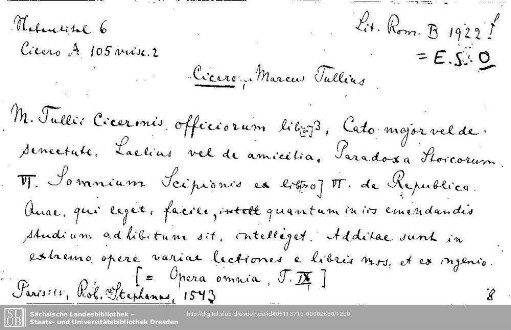 Nebentitel 6
Lit. Rom. B 1922 f
Cicero A 105 misc. 2
= E. S. O
Cicero, Marcus Tullius
M. Tullii Ciceronis officiorum lib[ri] 3, Cato major vel de
senectute, Laelius vel de amicitia, Paradoxa Stoicorum
VI. Somnium Scipionis ex lib[ro] VI. de Republica.
Quae, qui leget, facile, intell quantum in iis emendandis
studium adhibitum sit, intelleget. Additae sunt in
extremo opere variae lectiones e libris mss. et ex ingenio.
[= Opera omnia, T. IX]
Parisiis, Rob. Stephanus, 1543
8
SLUB
Sächsische Landesbibliothek –
Staats- und Universitätsbibliothek Dresden